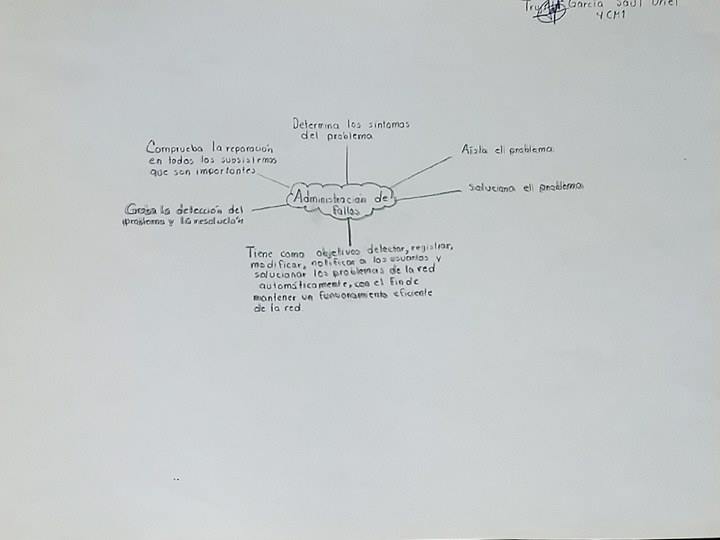 García Saúl Uriel
4CM1
Determina los síntomas
del problema
Comprueba la reparación
en todos los subsistemas
que son importantes
Aísla ell problema
Soluciona ell problema
Administración de
fallas
Graba la detección del
problema y la resolución
Tiene como objetivos detectar, registrar,
modificar, notificar a los usuarios y
solucionar los problemas de la red
automáticamente, con el fin de
mantener un funcionamiento eficiente
de la red.